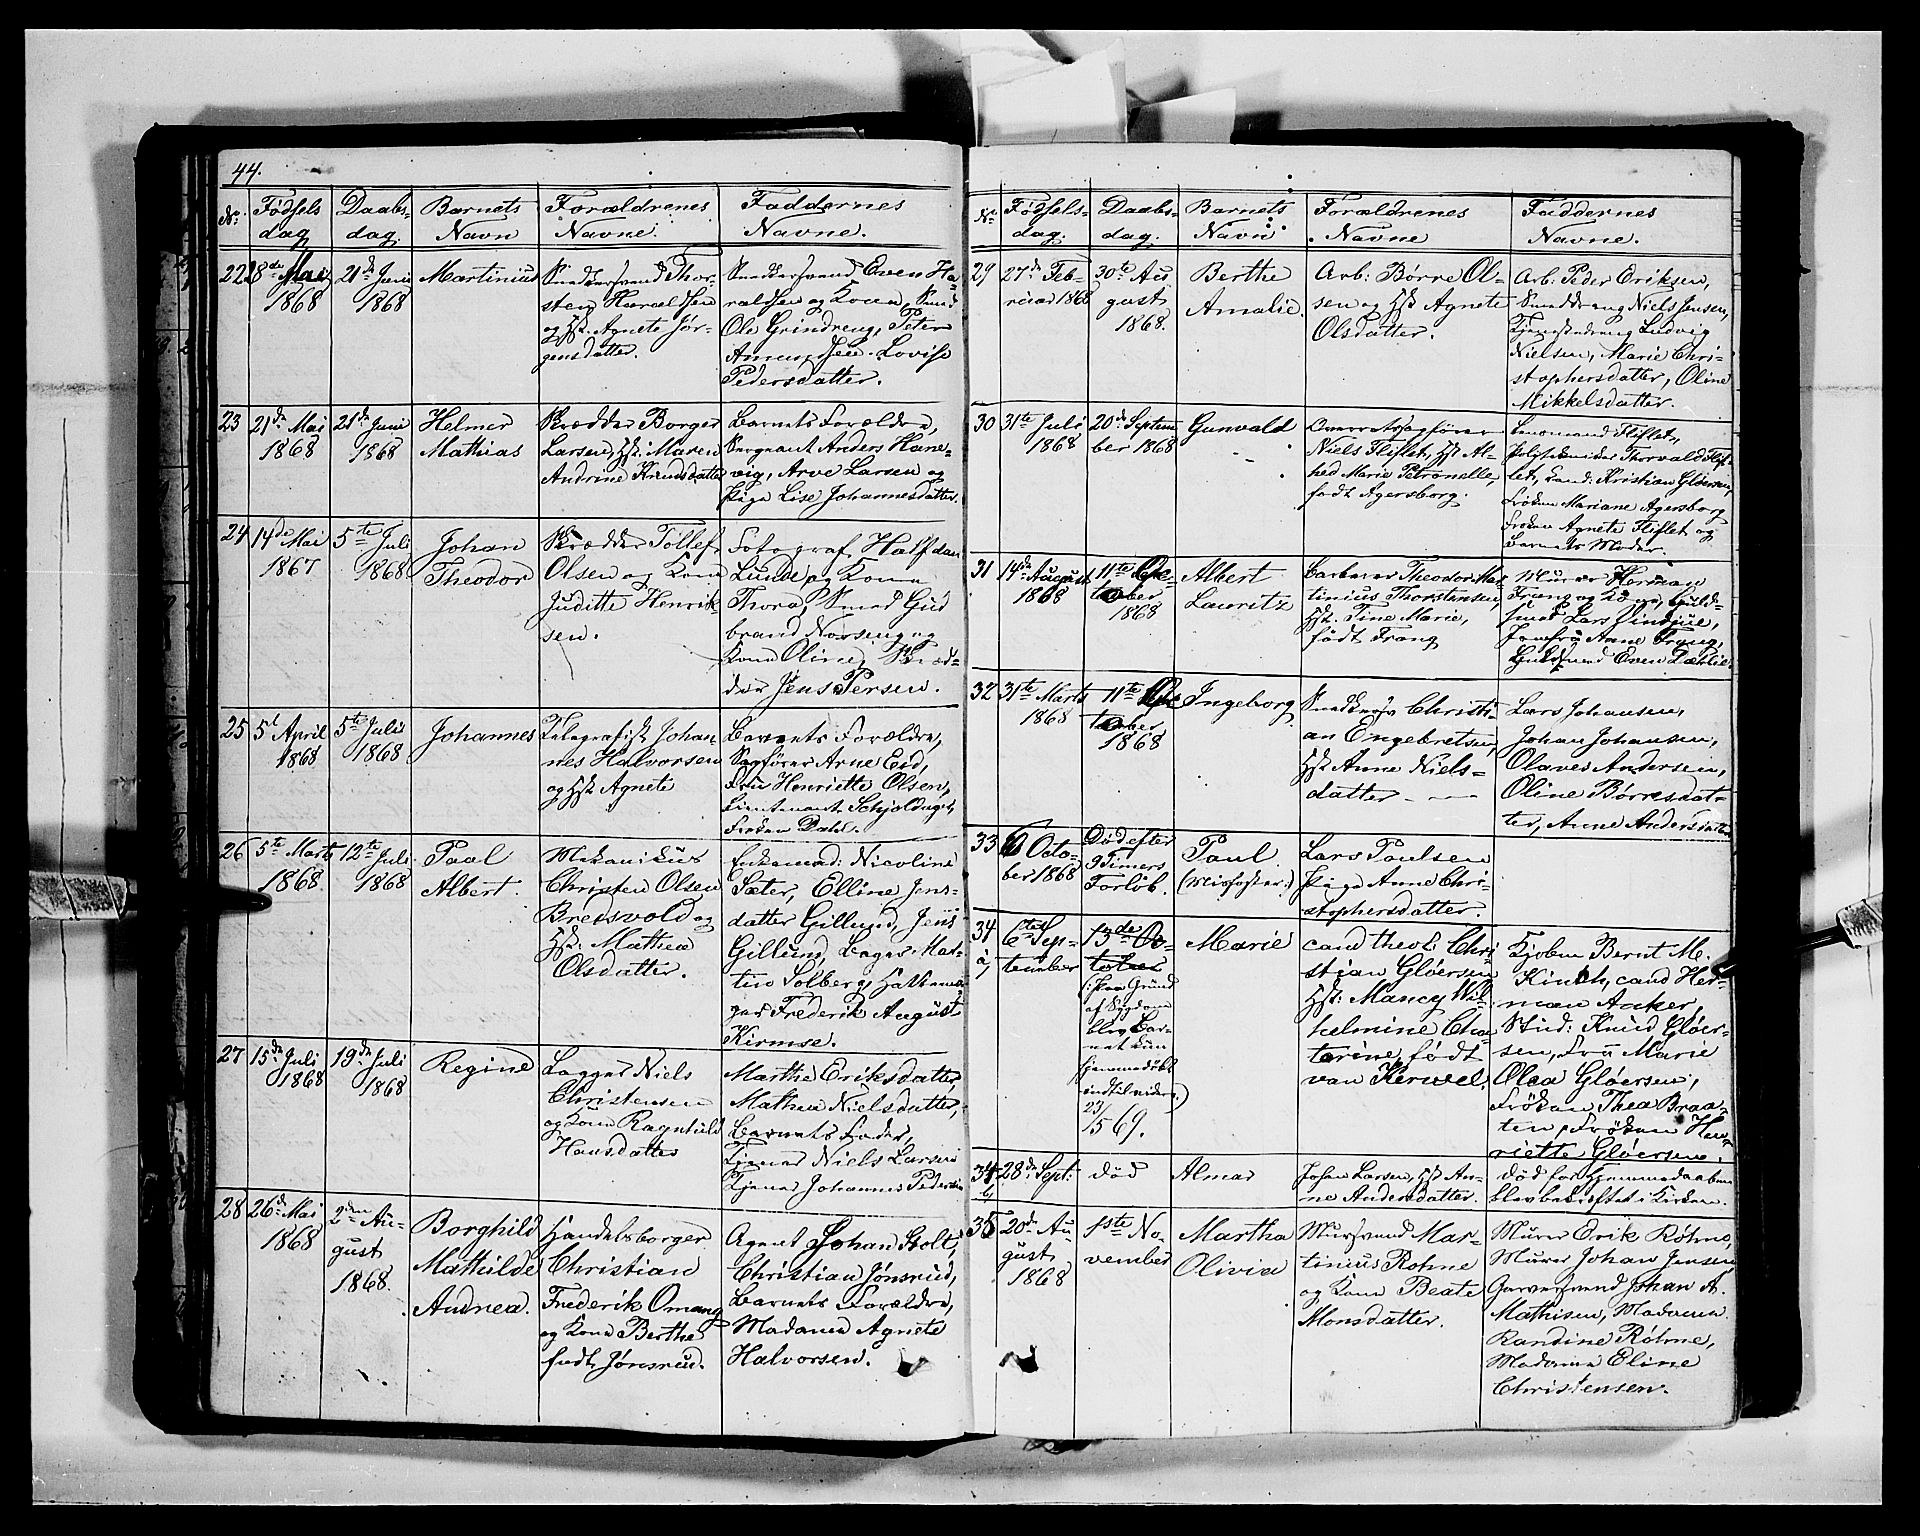 44.
No. Fødsels dag Daabs- dag. Barnets Navn Forældrenes Navne. Faddernes Navne.
22 8de Mai 1868
21de Juni 1868
Martinius
Snedkersvend Thor-
sten Haraldsen
og Hst. Agnete Jør-
gensdatter.
Snedkersvend Even Ha-
raldsen og Kone, Smed
Ole Grindreng, Peter
Amundsen. Lovise
Pedersdatter.
23 21de Mai 1868
21de Juni 1868
Helmer
Mathias
Skrædder Borger
Larsen, Hst. Maren
Andrine Knudsdatter
Barnets Forældre,
Sergeant Anders Hane-
vig, Arve Larsen og
Pige Lise Johannesdatter.
24 14de Mai 1867
5te Juli 1868
Johan
Theodor
Skrædder Tollef
Olsen og Kone
Juditte Henrik
sen.
Fotograf Halfdan
Lunde og Kone
Thora, Smed Gud
brand Norseng og
Kone Oline, Skræd-
der Jens Persen.
25 5te April 1868
5te Juli 1868
Johannes
Telegrafist Johan-
nes Halvorsen
og Hst. Agnete
Barnets Forældre,
Sagfører Arne Eid,
Fru Henriette Olsen,
Lieutenant Schjoldager,
Frøken Dahl.
26 5te Marts 1868
12te Juli 1868
Paal
Albert.
Mekanikus
Christen Olsen
Bredsvold og
Hst. Mathea
Olsdatter.
Enkemad: Nicoline
Sæter, Elline Jens-
datter Gillund, Jens
Gillund, Bager Mar-
tin Solberg, Hattema-
ger Frederik August
Kirmse.
27 15de Juli 1868
19de Juli 1868
Regine
Logger Niels
Christensen
og Kone Ragnhild
Hansdatter
Marthe Eriksdatter,
Mathea Nielsdatter,
Barnets Fader,
Tjener Niels Larsen
Tjener Johannes Pedersen
28 26de Mai 1868
2den Au-
gust
1868.
Borghild
Mathilde
Andrea.
Handelsborger
Christian
Frederik Omang
og Kone Berthe
født Jønsrud.
Agent Johan Stolt,
Christian Jønsrud,
Barnets Forældre,
Madame Agnete
Halvorsen.
No. Fødsels- dag. Daabs- dag. Barnets Navn Forældrenes Navne Faddernes Navne.
29 27de Feb-
ruar 1868
30te Au
gust
1868.
Berthe
Amalie.
Arb: Børre Ol-
sen og Hst Agnete
Olsdatter.
Arb. Peder Eriksen,
Smeddreng Niels Jensen,
Tjenestedreng Ludvig
Nielsen, Marie Chri-
stophersdatter, Oline
Mikkelsdatter.
30 31te Juli 1868
20de Septem
ber 1868
Gunvald
Overretssagfører
Niels Fliflet, Hst Al-
hed Marie Petronelle,
født Agersborg.
Lensmand Fliflet,
Polytekniker Thorvald Flif-
let, Cand: Kristian Gløersen,
Frøken Mariane Agersborg
Frøken Agnete Fliflet og
Barnets Moder.
31 14de August 1868
11te Ok-
tober
1868
Albert
Lauritz
Barberer Theodor Mar-
tinius Thorstensen,
Hst. Tine Marie,
født Frang
Murer Herman
Frang og Kone, Guld-
smed Lars Lindjue,
Jomfru Anne Frang,
Guldsmed Even Dæhlie
32 31te Marts 1868
11te Ok
tober
1868
Ingeborg
Snedkersv Christi-
an Engebretsen,
Hst Anne Niels-
datter
Lars Johansen,
Johan Johansen,
Olaves Andersen,
Oline Børresdat-
ter, Anne Andersdatter
33 6 Octo-
ber 1868
Død efter
9 Timers
Forløb.
Paul.
(Misfoster.)
Lars Paulsen
Pige Anne Chri-
stophersdatter.
34 a, 6te Sep-
tember
13de Oc-
tober
(: paa Grund
af Sygdom
blev Bar-
net kun
hjemmedøbt
indtil videre.)
23/5 69.
Marie
cand theol: Chri-
stian Gløersen
Hst: Mancy Wil-
helmine Cha-
tarine, født
van Kerwel,
Kjøbm Bernt M.
Kinch, cand Her-
man Anker,
Stud: Knud Gløer-
sen, Frü Marie
Olea Gløersen,
Frøken Thea Braa-
ten, Frøken Hen-
riette Gløersen.
34 b, 28de Sept:
død
Almar
Johan Larsen, Hst An-
ne Andersdatter.
død før Hjemmedaaben
blev bekræftet i Kirken.
35 20de Au-
gust
1868
1ste No-
vember
Martha
Olivia
Mursvend Mar-
tinius Rohne
og Kone Beate
Monsdatter.
Murer Erik Røhne,
Murer Johan Jensen
Garversvend Johan A.
Mathisen, Madame
Randine Røhne,
Madame Eline
Christensen.